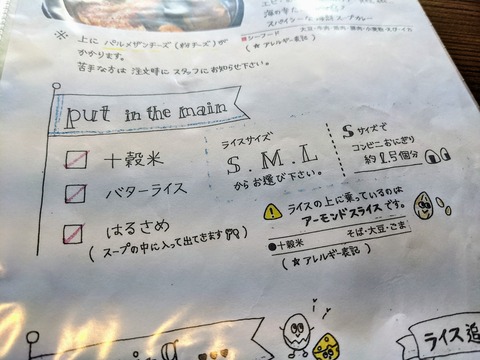 スパイシーな海鮮スープカレー
■シーフード
(★アレルギー表記)
※ 上に パルメザンチーズ(粉チーズ)が
かかります。
苦手な方は 注文時に スタッフにお知らせ下さい。
put in the main
十穀米
バターライス
はるさめ
(スープの中に入って出てきます)
ライスサイズ
S.M.L
からお選び下さい。
Sサイズで
コンビニおにぎり
約1.5個分
ライスの上に乗っているのは
アーモンドスライスです。
●十穀米
そば・大豆・ごま
(★アレルギー表記)
ライス追